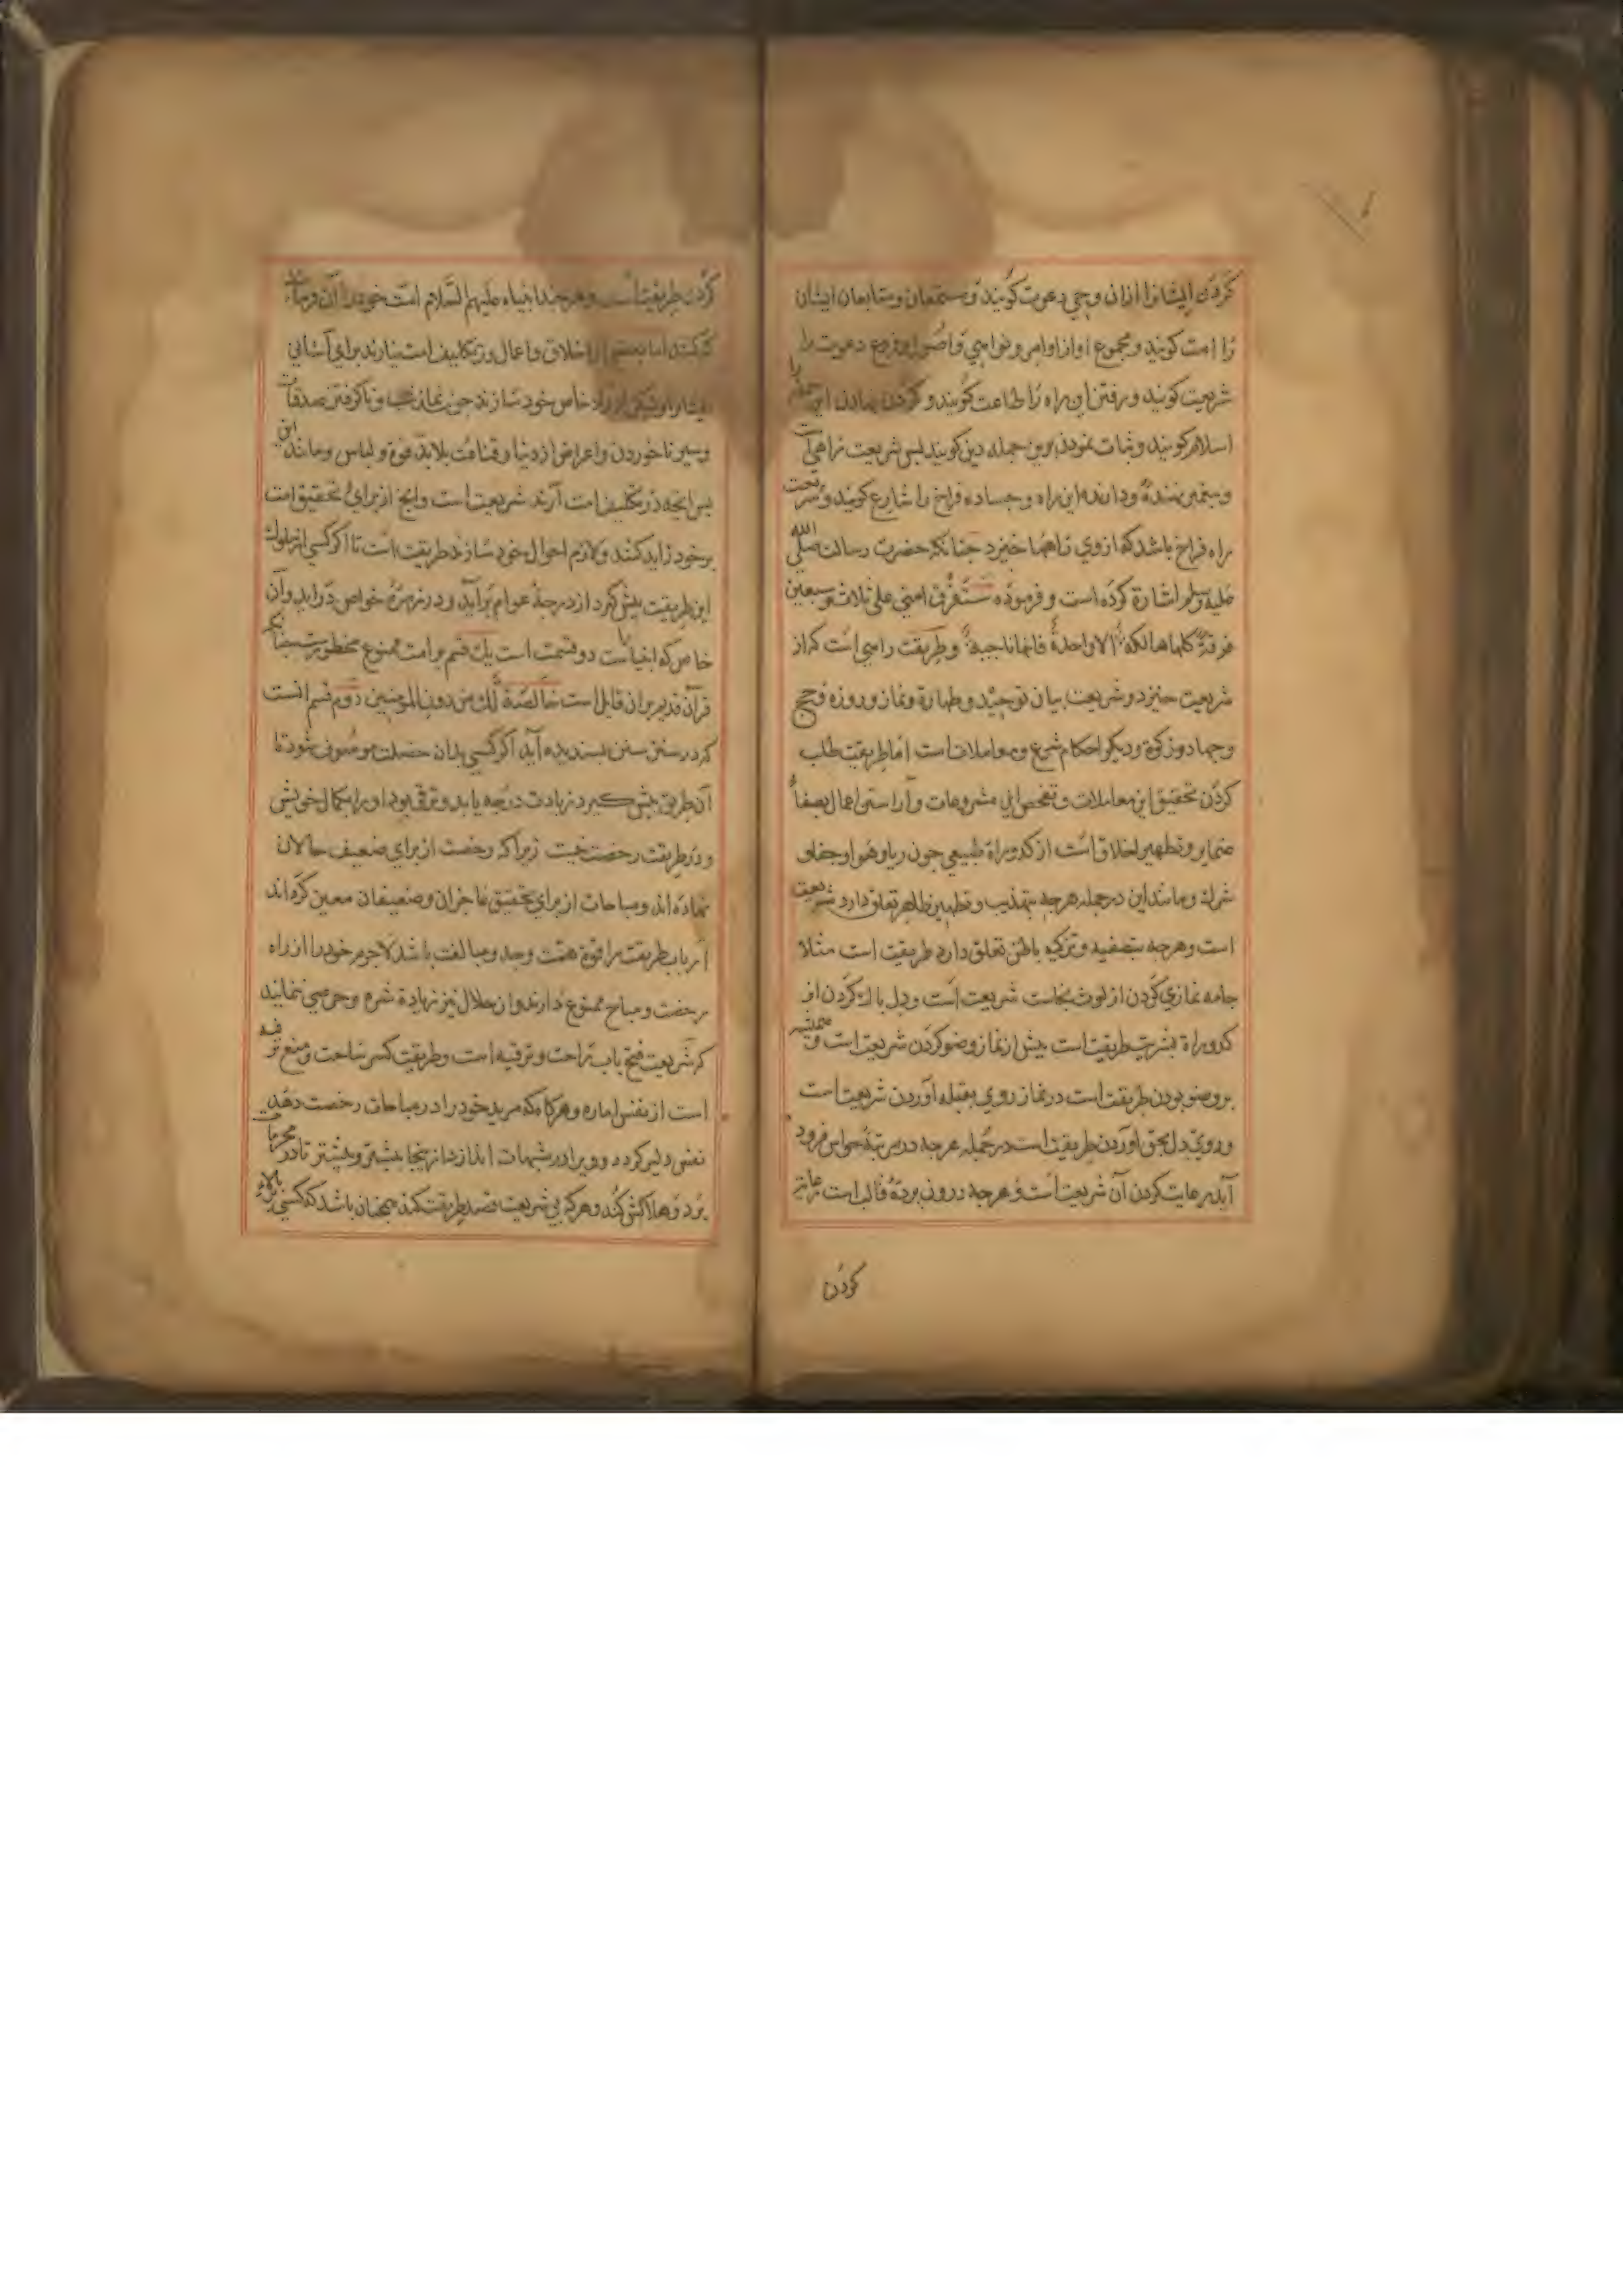 کردن ایشانرا ازان وحی دعوت کویند و مستمعان و متابعان ایشان
را امت کویند و مجموع اوازاوامر و نواهی و اصول و فروع دعوت را
شریعت کویند و رفتن این راه را طاعت کویند و کردن نهادن این جمله را
اسلام کویند و ثبات نمودن برین جمله دین کویند بس شریعت راهی است
و بیغمبر نهنده و دارنده این راه و جاده فراخ را شارع کویند و شریعت
راه فراخ باشد که ازوی راهها خیزد جنانکه حضرت رسالت صلی الله
علیه وسلم اشارة کرده است و فرموده ستفرق امتی علی ثلاث و سبعین
فرقة کلها هالکة الا واحدة فانها ناجیة و طریقت راهی است که از
شریعت خیزد و شریعت بیان توحید و طهارة و نماز و روزه و حج
و جهاد و زکوة و دیکر احکام شرع و معاملات است اما طریقت طلب
کردن تحقیق این معاملات و تفحص این مشروعات و آراستن اعمال بصفاء
ضمایر و تطهیر اخلاق است از کدوراة طبیعی جون ریا و هوا و جفا و
شرك و مانند این در جمله هرجه بتهذیب و تطهیر ظاهر تعلق دارد شریعت
است و هرجه بتصفیه و تزکیه باطن تعلق دارد طریقت است مثلا
جامه نمازی کردن از لوث نجاست شریعت است و دل باك کردن از
کدوراة بشریت طریقت است بیش از نماز وضو کردن شریعت است و همیشه
بروضو بودن طریقت است در نماز روی بقبله آوردن شریعت است
و روی دل بحق اوردن طریقت است در جمله هرجه در مرتبهٔ حواس فرود
آید رعایت کردن آن شریعت است و هرجه درون بردهٔ قالب است رعایتِ
کردن
کردن طریقت است و هرجند انبیاء علیهم السلام امت خود را آن فرمایند
که کنند اما بعضی از اخلاق و اعمال در تکلیف امت نیارند برای آسانی
خاص خود سازند جون نماز شب و ناکرفتن صدقات
و سیر ناخوردن و اعراض از دنیا و قناعت بلابد قوة و لباس و مانند این
بس انجه در تکلیف امت آرند شریعت است و انج از برای تحقیق امت
برخود زاید کنند و لازم احوال خود سازند طریقت است تا اکر کسی از ملوك
این طریقت بیش کیرد از درجهٔ عوام برآید و در زمرهٔ خواص درآید و آن
خاص که انبیا راست دو قسمت است یك قسم بر امت ممنوع محظورست جنانکه
قرآن قدیم بران قایل است خالصة لك من دون المومنین دوم قسم انست
که در سنن بسندیده آید اکر کسی بدان خصلت موصوف شود تا
آن طریق بیش کیرد زیادت درجه یابد و ترقی بود او را بکمال خویش
و در طریقت رخصت نیست زیراکه رخصت از برای ضعیف حالان
نهاده اند و مباحات از برای تحقیق عاجزان و ضعیفان معین کرده اند
ارباب طریقت را قوة همت و جد و مبالغت باشد لاجرم خود را از راه
رخصت و مباح ممنوع دارند و از حلال نیز زیادة شره و حرصی نمایند
که شریعت فتح باب راحت و ترفیه است و طریقت کسر راحت و منع ترفیه
است از نفس اماره و هرکاه که مرید خود را در مباحات رخصت دهد
نفس دلیر کردد و ویرا در شبهات اندازد از انجا بیشتر و بیشتر تا در محرمات
برد و هلاکش کند و هرکه بی شریعت قصد طریقت کند همچنان باشد که کسی بالاء